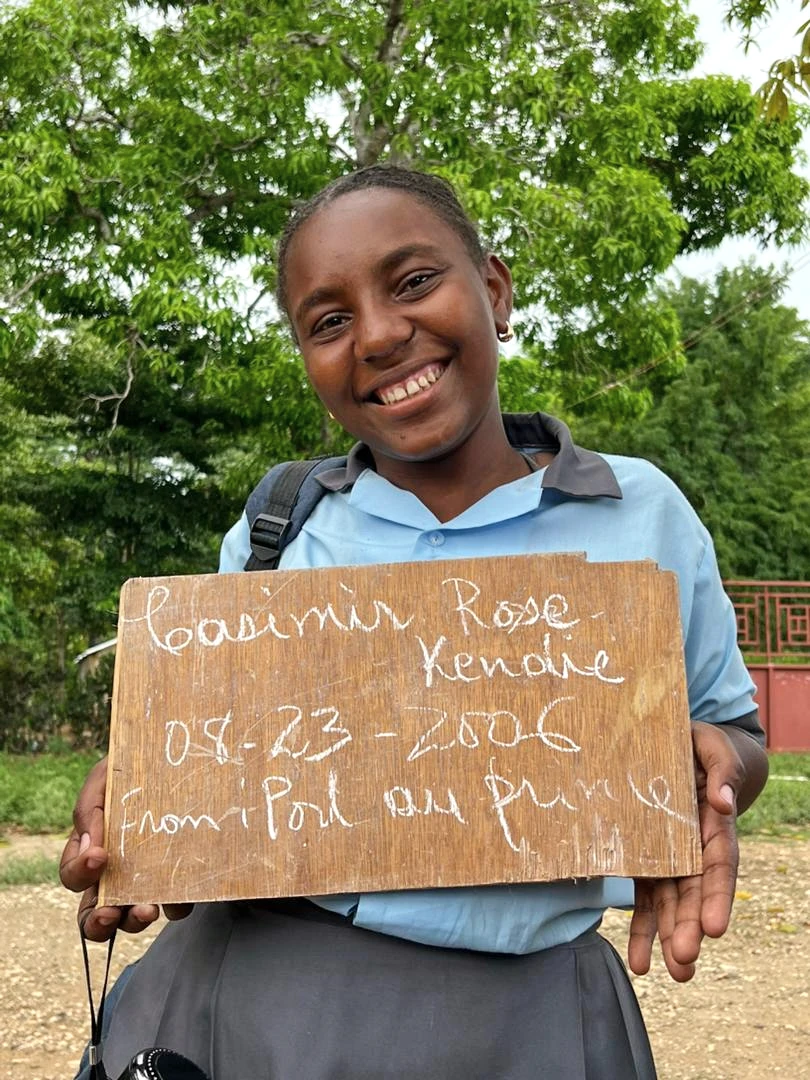 Casimir Rose-
Kendie
08-23-2006
From : Port au prince